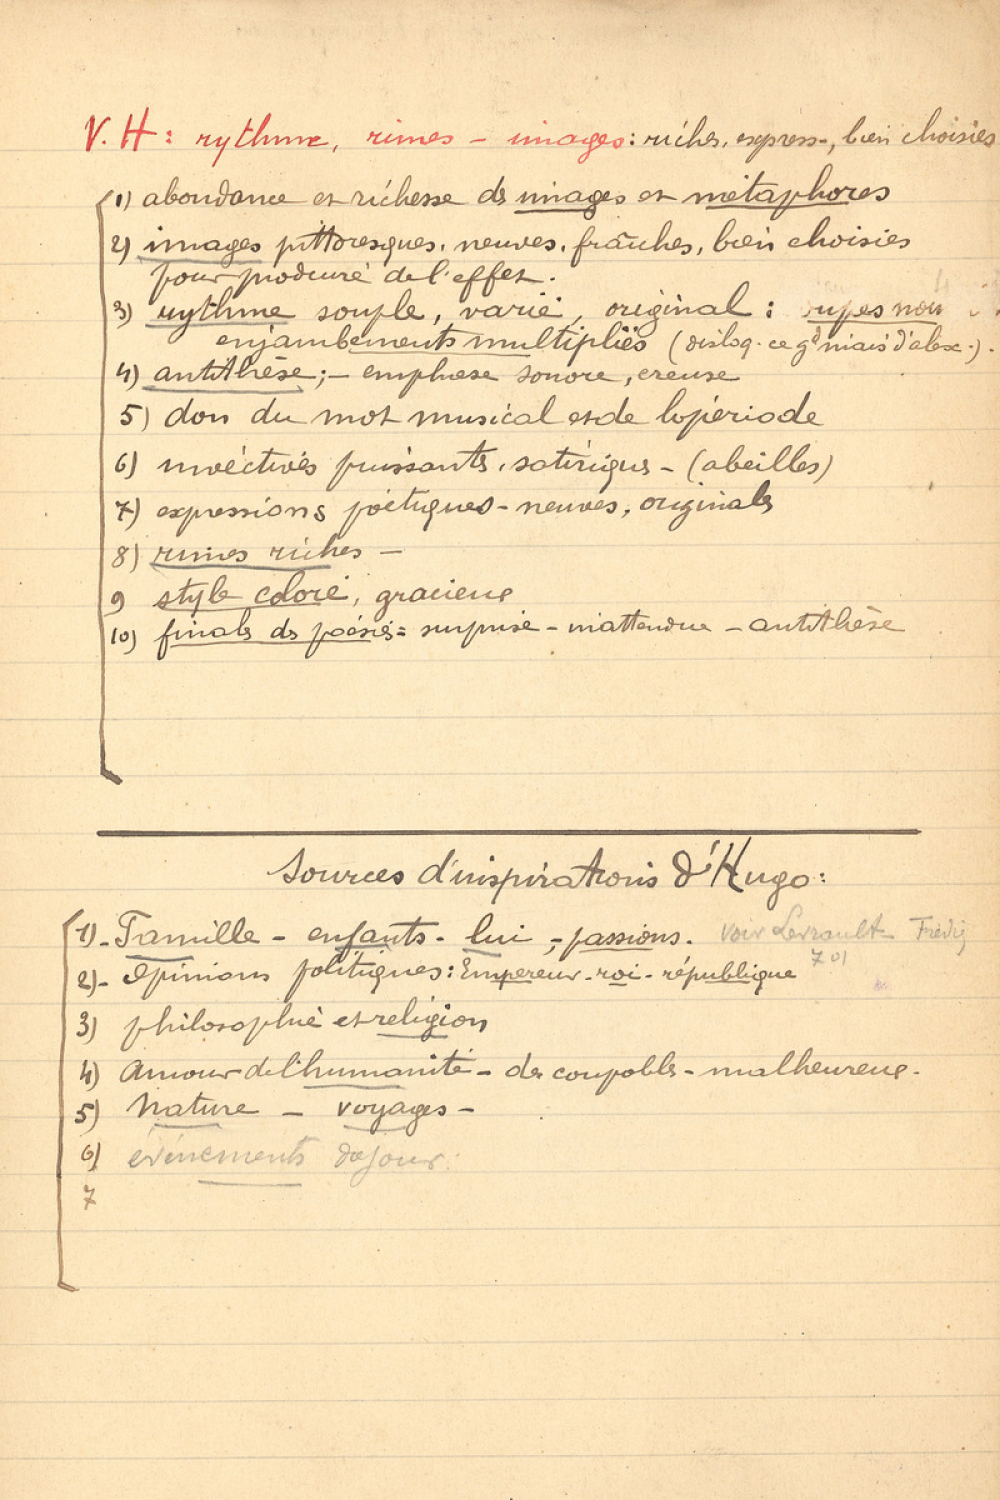 V. H : rythme, rimes – images : riches, express–, bien choisies
1) abondance et richesse des images et métaphores
2) images pittoresques, neuves, fraîches, bien choisies
pour produire de l'effet.
3) rythme souple, varié, original :
enjambements multipliés (disloq. ce gd niais d'alex.).
4) antithèse ; – emphase sonore, creuse
5) don du mot musical et de la période
6) invectives puissants, satiriques – (abeilles)
7) expressions poétiques – neuves, originales
8) rimes riches –
9 style coloré, gracieux
10) finales des poésies = surprise – inattendue – antithèse
Sources d'inspirations d'Hugo :
1)- Famille – enfants – lui ; – passions. voir Levrault Frédig
701
2)- Opinions politiques : Empereur – roi – république
3) philosophie et religion
4) Amour de l'humanité – des coupables – malheureux.
5) Nature – voyages –
6) événements du jour.
7